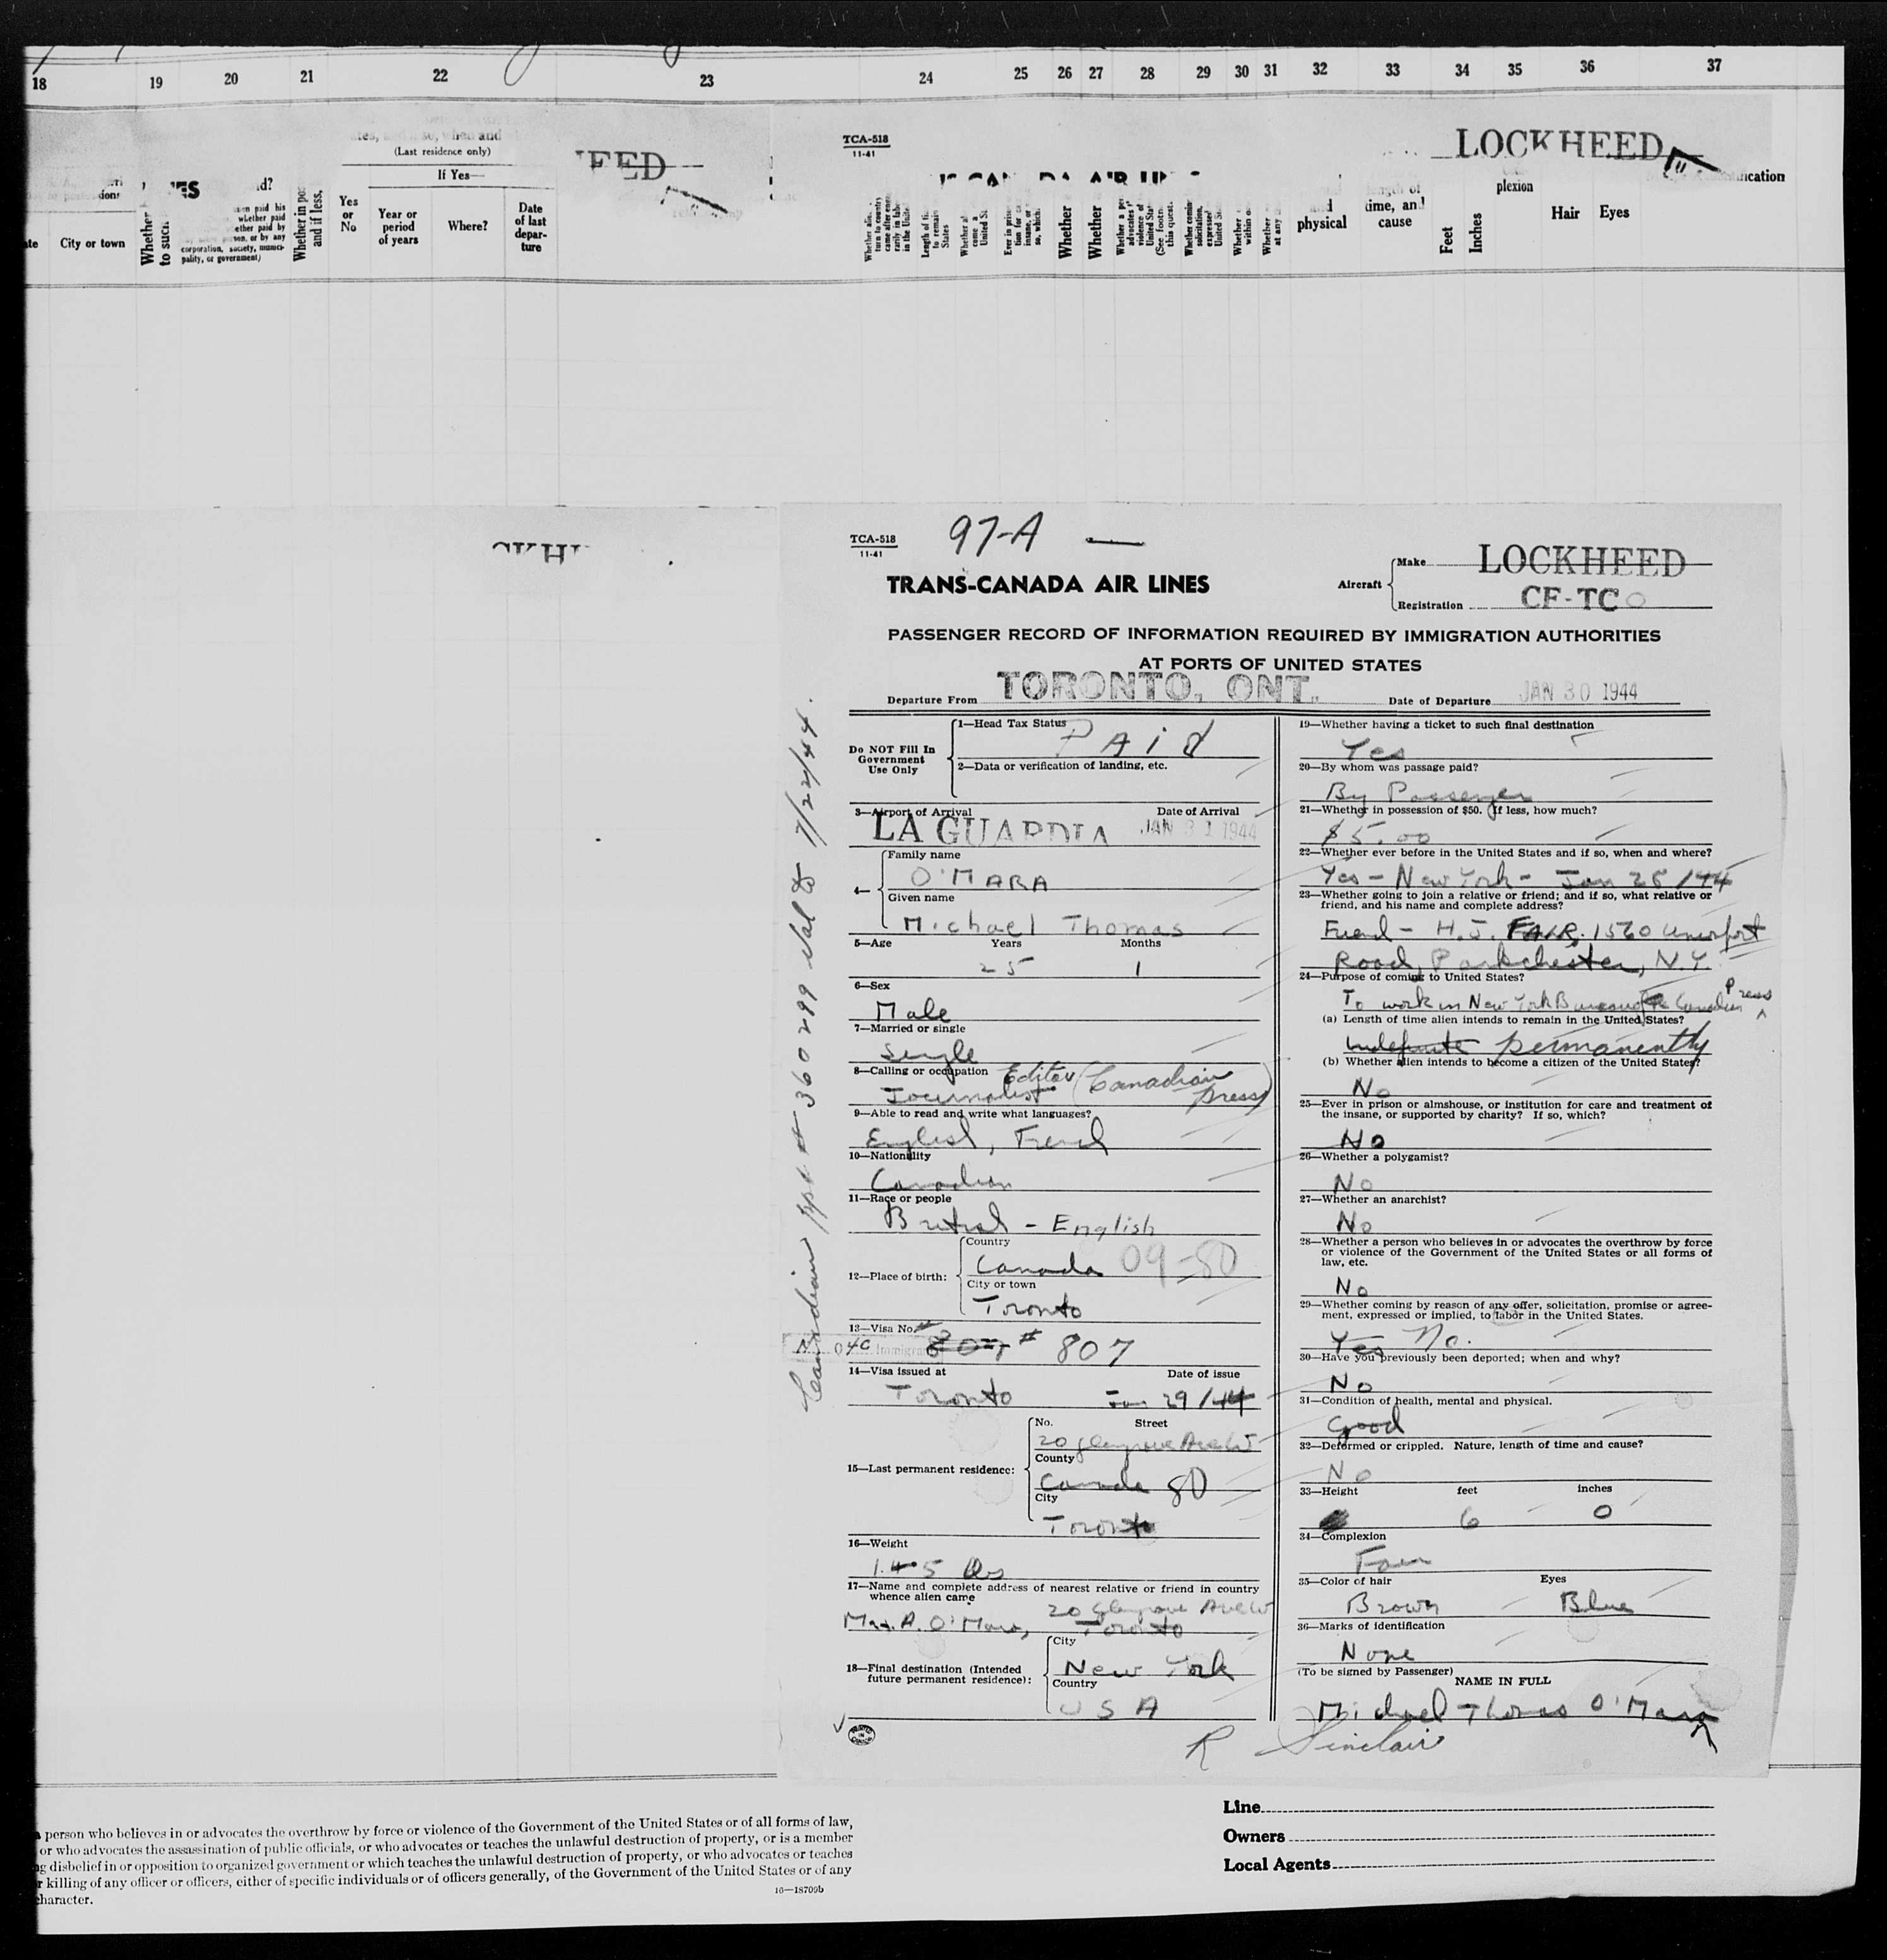 18 19 20 21 22 23 24 25 26 27 28 29 30 31 32 33 34 35 36 37
(Last residence only)
If Yes—
City or town
Whether
to such
whether paid
corporation, society, munici-
pality, or government)
and if less,
Yes
or
No
Year or
period
of years
Where?
Date
of last
depar-
ture
TCA-518
11-41
LOCKHEED
Whether
Whether
physical
time, and
cause
Feet
Inches
plexion
Hair Eyes
TCA-518
11-41
97-A —
TRANS-CANADA AIR LINES
Aircraft
Make LOCKHEED
Registration CF-TCO
PASSENGER RECORD OF INFORMATION REQUIRED BY IMMIGRATION AUTHORITIES
AT PORTS OF UNITED STATES
Departure From TORONTO, ONT. Date of Departure JAN 30 1944
Do NOT Fill In
Government
Use Only
1—Head Tax Status
PAid
2—Data or verification of landing, etc.
3—Airport of Arrival Date of Arrival
LA GUARDIA JAN 31 1944
4—
Family name
O'MARA
Given name
Michael Thomas
5—Age Years Months
25 1
6—Sex
Male
7—Married or single
Single
8—Calling or occupation Editor (Canadian
Journalist Press)
9—Able to read and write what languages?
English, French
10—Nationality
Canadian
11—Race or people
British - English
12—Place of birth:
Country
Canada 09-80
City or town
Toronto
13—Visa No.
807 # 807
14—Visa issued at Date of issue
Toronto Jan 29/44
15—Last permanent residence:
No. Street
20 Glengrove Ave W
County
Canada 80
City
Toronto
16—Weight
145 lbs
17—Name and complete address of nearest relative or friend in country
whence alien came
20 Glengrove Ave W
A. O'Mara, Toronto
18—Final destination (Intended
future permanent residence):
City
New York
Country
USA
PRINTED
IN
CANADA
Canadian ppt # 360299 Val to 7/22/44.
19—Whether having a ticket to such final destination
Yes
20—By whom was passage paid?
By Passenger
21—Whether in possession of $50. (If less, how much?
$5.00
22—Whether ever before in the United States and if so, when and where?
Yes - New York - Jan 28/44
23—Whether going to join a relative or friend; and if so, what relative or
friend, and his name and complete address?
Friend - H.J. FAIR, 1560 Unionport
Road, Parkchester, N.Y.
24—Purpose of coming to United States?
To work in New York Bureau The Canadian Press
(a) Length of time alien intends to remain in the United States?
Indefinite permanently
(b) Whether alien intends to become a citizen of the United States?
No
25—Ever in prison or almshouse, or institution for care and treatment of
the insane, or supported by charity? If so, which?
No
26—Whether a polygamist?
No
27—Whether an anarchist?
No
28—Whether a person who believes in or advocates the overthrow by force
or violence of the Government of the United States or all forms of
law, etc.
No
29—Whether coming by reason of any offer, solicitation, promise or agree-
ment, expressed or implied, to labor in the United States.
Yes No.
30—Have you previously been deported; when and why?
No
31—Condition of health, mental and physical.
Good
32—Deformed or crippled. Nature, length of time and cause?
No
33—Height feet inches
6 0
34—Complexion
Fair
35—Color of hair Eyes
Brown Blue
36—Marks of identification
None
(To be signed by Passenger)
NAME IN FULL
Michael Thomas O'Mara
R Sinclair
person who believes in or advocates the overthrow by force or violence of the Government of the United States or of all forms of law,
or who advocates the assassination of public officials, or who advocates or teaches the unlawful destruction of property, or is a member
disbelief in or opposition to organized government or which teaches the unlawful destruction of property, or who advocates or teaches
killing of any officer or officers, either of specific individuals or of officers generally, of the Government of the United States or of any
character.
16—18709b
Line
Owners
Local Agents